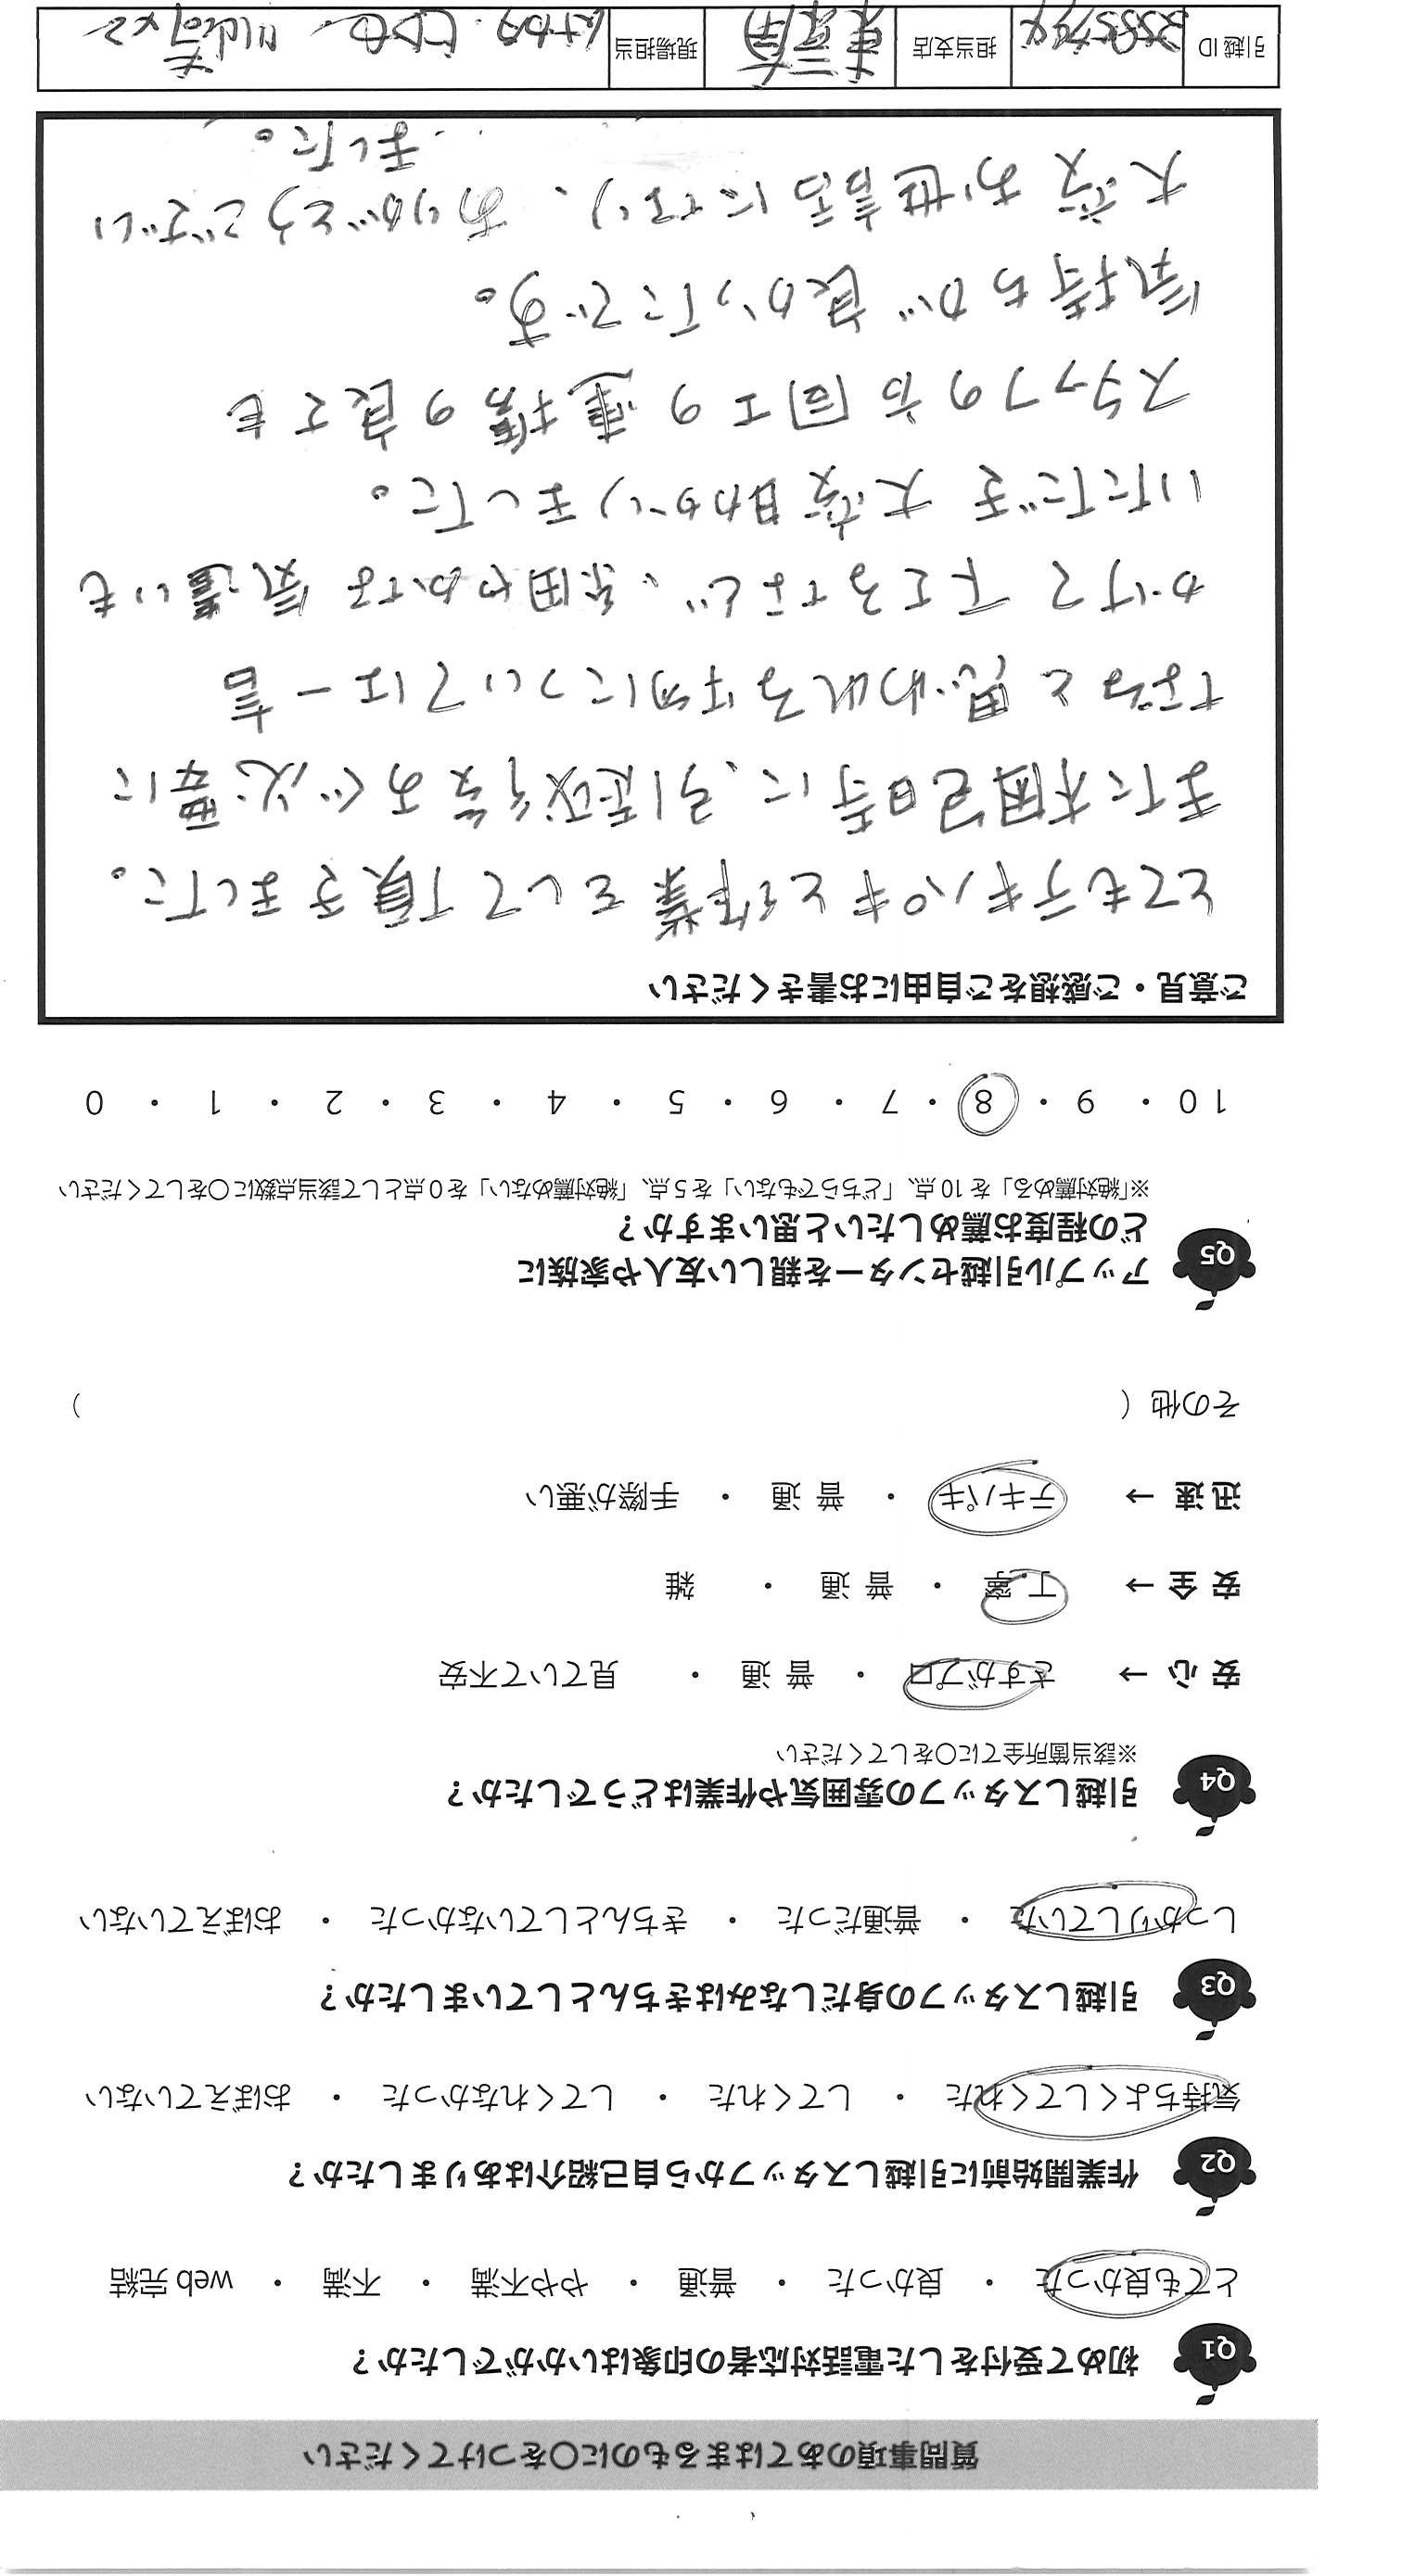 質問事項のあてはまるものに〇をつけてください
Q1 初めて受付をした電話対応者の印象はいかがでしたか？
とても良かった ・ 良かった ・ 普通 ・ やや不満 ・ 不満 ・ web 完結
Q2 作業開始前に引越しスタッフから自己紹介はありましたか？
気持ちよくしてくれた ・ してくれた ・ してくれなかった ・ おぼえていない
Q3 引越しスタッフの身だしなみはきちんとしていましたか？
しっかりしていた ・ 普通だった ・ きちんとしていなかった ・ おぼえていない
Q4 引越しスタッフの雰囲気や作業はどうでしたか？
※該当箇所全てに〇をしてください
安 心 → さすがプロ ・ 普 通 ・ 見ていて不安
安 全 → 丁 寧 ・ 普 通 ・ 雑
迅 速 → テキパキ ・ 普 通 ・ 手際が悪い
その他 （ ）
Q5 アップル引越センターを親しい友人や家族に
どの程度お薦めしたいと思いますか？
※「絶対薦める」を 10 点、「どちらでもない」を 5 点、「絶対薦めない」を 0 点として該当点数に〇をしてください
10 ・ 9 ・ 8 ・ 7 ・ 6 ・ 5 ・ 4 ・ 3 ・ 2 ・ 1 ・ 0
ご意見・ご感想をご自由にお書きください
とてもテキパキと作業をして頂きました。
また梱包時に、引越後すぐ必要に
なると思われる物については一言
かけて下さるなど、細やかな気遣いも
いただき大変助かりました。
スタッフの方同士の連携の良さも
気持ちが良かったです。
大変お世話になり、ありがとうござい
ました。
引越 ID
担当支店
現場担当